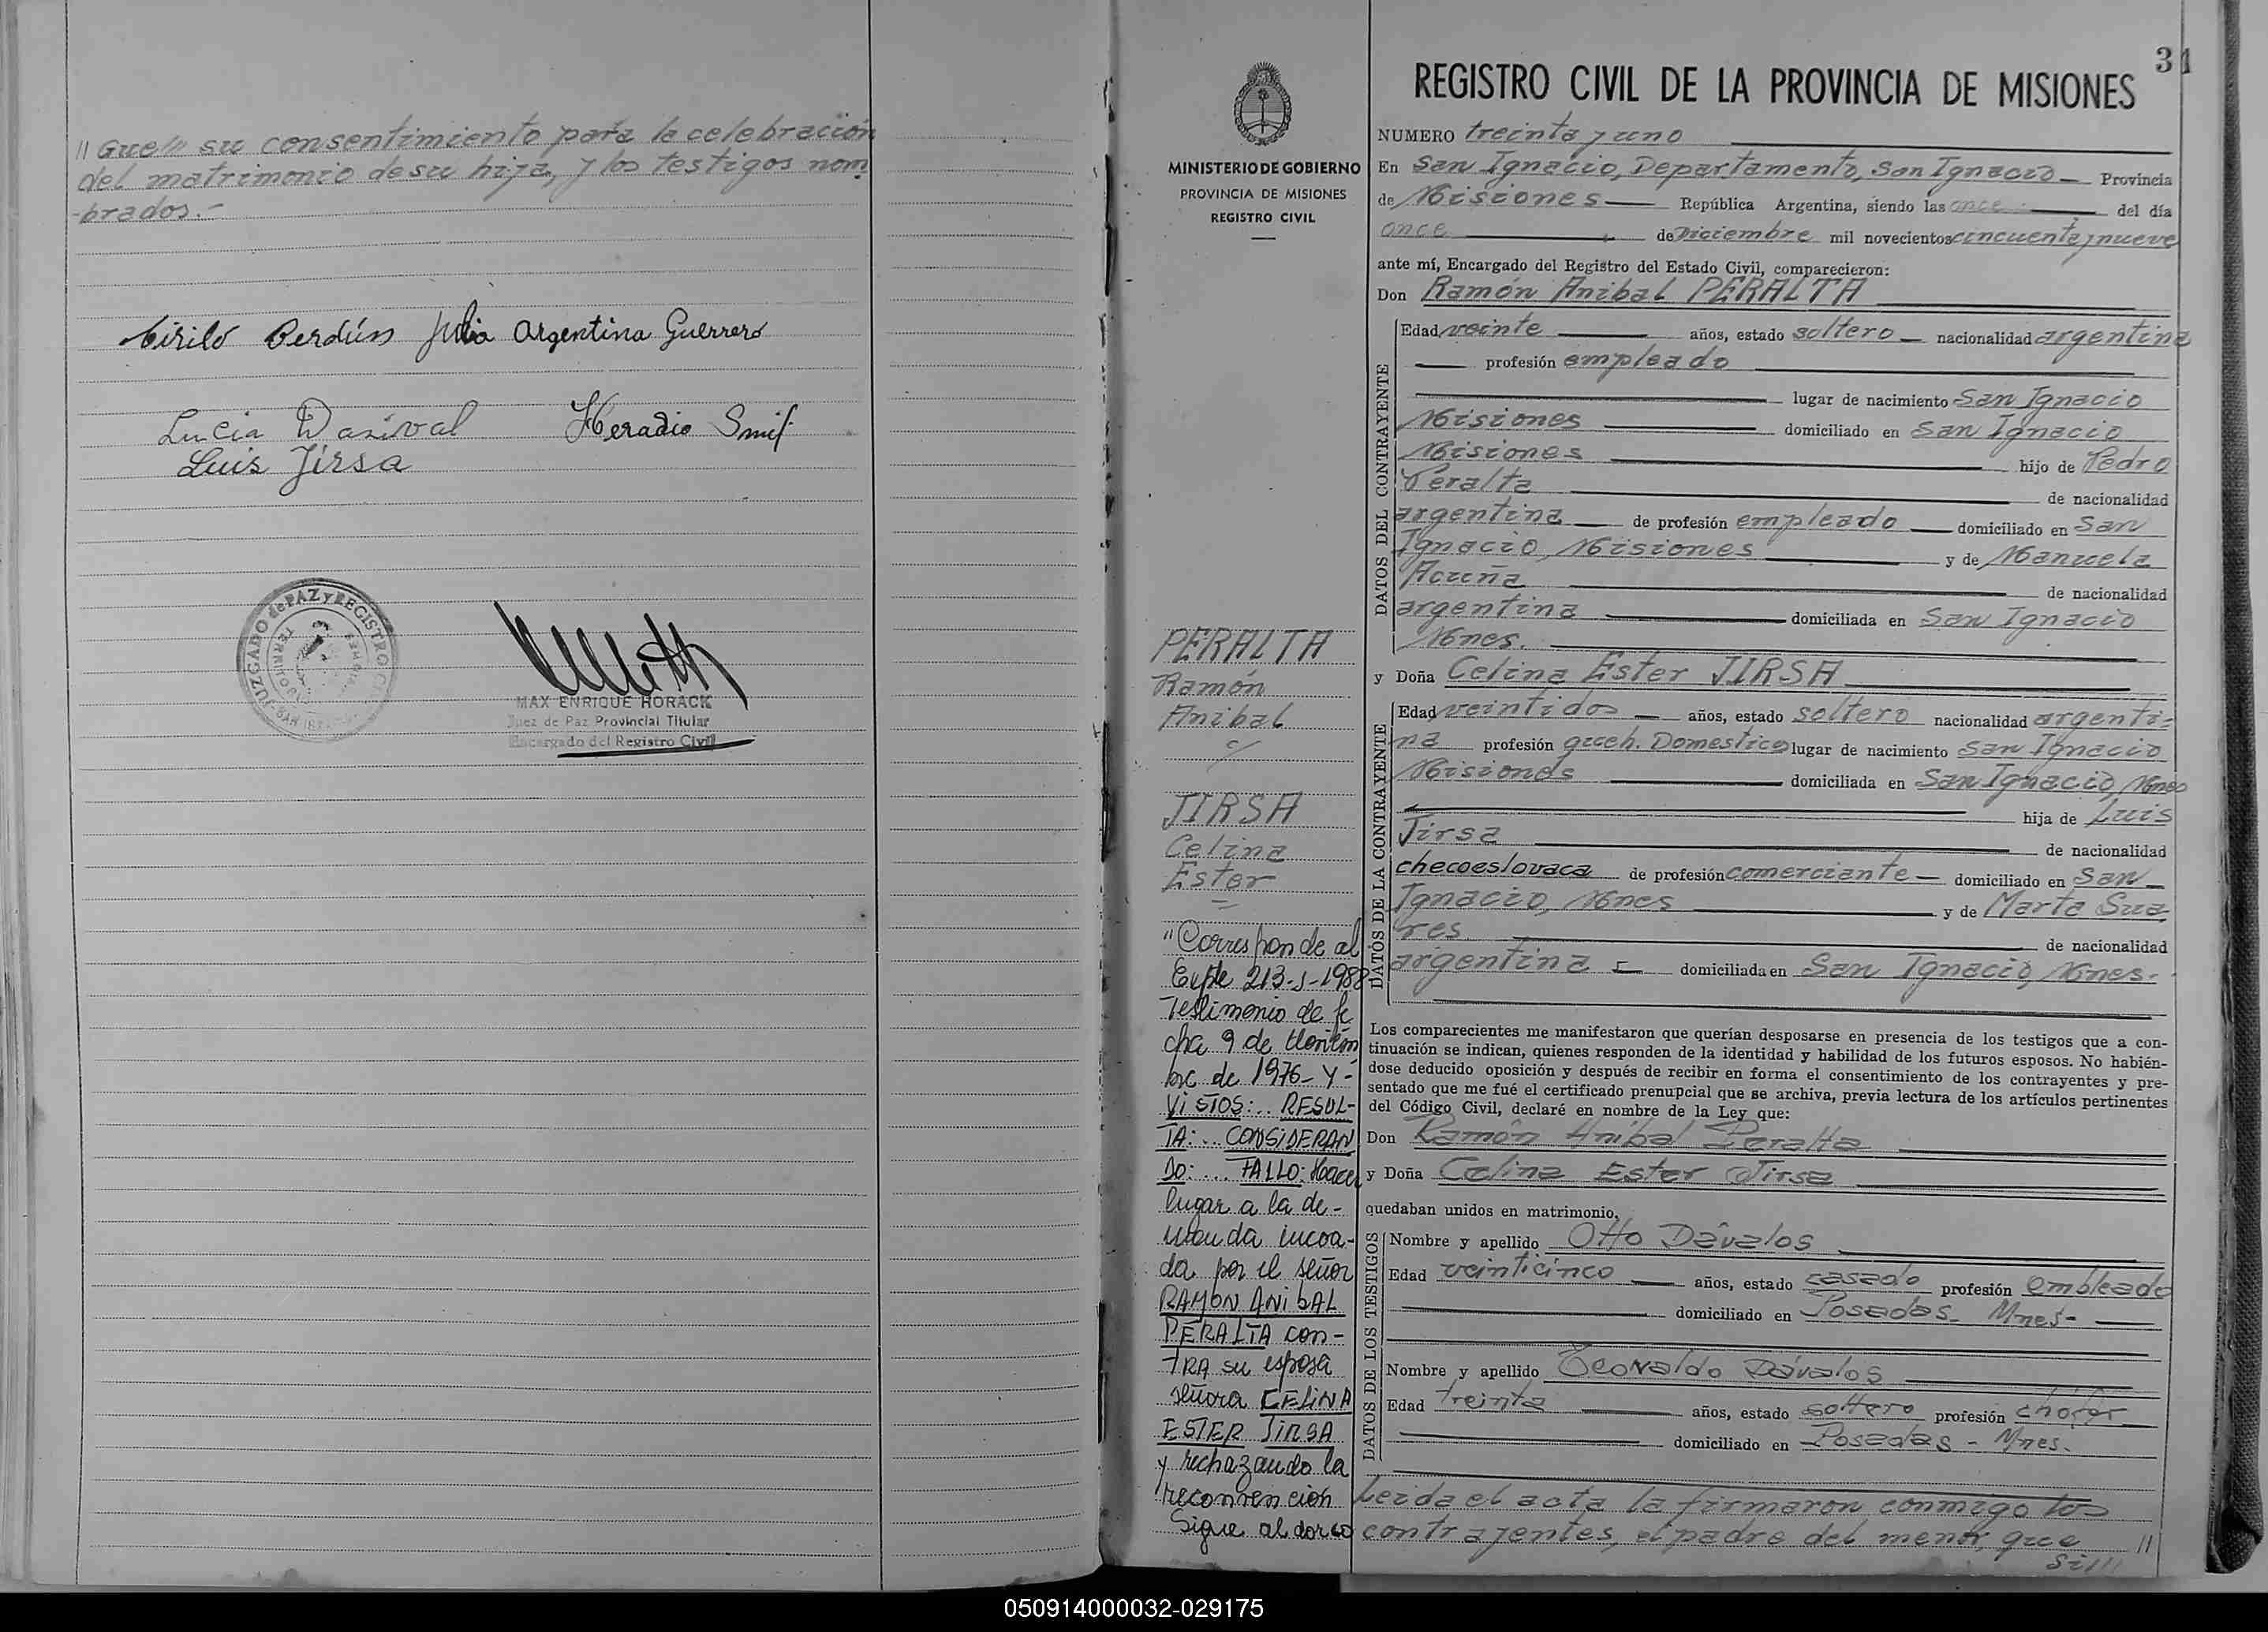 "Gue" su consentimiento para la celebración
del matrimonio de su hija, y los testigos nom
-brados.-
Cirilo Verdún Julia Argentina Guerrero
Lucia Dasival Heradio Smif
Luis Jirsa
JUZGADO de PAZ y REGISTRO
MAX ENRIQUE HORACK
Juez de Paz Provincial Titular
Encargado del Registro Civil
31
MINISTERIO DE GOBIERNO
PROVINCIA DE MISIONES
REGISTRO CIVIL
PERALTA
Ramón
Anibal
c/
JIRSA
Celina
Ester
"Corresponde al
Expte 213-J-1988
Testimonio de fe
cha 9 de Noviem
bre de 1976- Y-
VISTOS:.. RESUL-
TA:.. CONSIDERAN
DO:... FALLO: Hacer
lugar a la de-
manda incoa-
da por el señor
RAMON ANIBAL
PERALTA con-
TRA su esposa
señora CELINA
ESTER JIRSA
y rechazando la
reconvención
Sigue al dorso
REGISTRO CIVIL DE LA PROVINCIA DE MISIONES
NUMERO treinta y uno
En San Ignacio, Departamento, San Ignacio Provincia
de Misiones República Argentina, siendo las once del día
once de Diciembre mil novecientos cincuenta y nueve
ante mí, Encargado del Registro del Estado Civil, comparecieron:
Don Ramón Anibal PERALTA
DATOS DEL CONTRAYENTE
Edad veinte años, estado soltero nacionalidad argentina
profesión empleado
lugar de nacimiento San Ignacio
Misiones domiciliado en San Ignacio
Misiones hijo de Pedro
Peralta de nacionalidad
argentina de profesión empleado domiciliado en San
Ignacio, Misiones y de Manuela
Acuña de nacionalidad
argentina domiciliada en San Ignacio
Mnes.
y Doña Celina Ester JIRSA
DATOS DE LA CONTRAYENTE
Edad veintidos años, estado soltero nacionalidad argenti-
na profesión queh. Domestico lugar de nacimiento San Ignacio
Misiones domiciliada en San Ignacio, Mnes
hija de Luis
Jirsa de nacionalidad
checoeslovaca de profesión comerciante domiciliado en San
Ignacio, Mnes y de Marta Sua
res de nacionalidad
argentina domiciliada en San Ignacio, Mnes.
Los comparecientes me manifestaron que querían desposarse en presencia de los testigos que a con-
tinuación se indican, quienes responden de la identidad y habilidad de los futuros esposos. No habién-
dose deducido oposición y después de recibir en forma el consentimiento de los contrayentes y pre-
sentado que me fué el certificado prenupcial que se archiva, previa lectura de los artículos pertinentes
del Código Civil, declaré en nombre de la Ley que:
Don Ramón Anibal Peralta
y Doña Celina Ester Jirsa
quedaban unidos en matrimonio,
DATOS DE LOS TESTIGOS
Nombre y apellido Otto Dávalos
Edad veinticinco años, estado casado profesión empleado
domiciliado en Posadas- Mnes-
Nombre y apellido Teovaldo Dávalos
Edad treinta años, estado soltero profesión chófer
domiciliado en Posadas - Mnes.
Leida el acta la firmaron conmigo los
contrayentes, el padre del menor que //
050914000032-029175